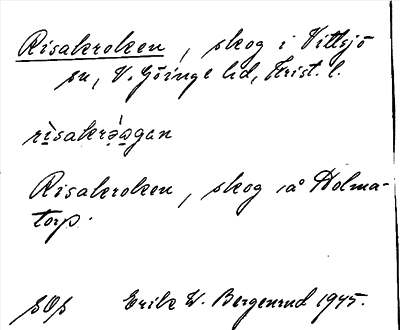 Risakroken, skog i Vittsjö
sn, V. Göinge hd, Krist. l.
rìsakrə́ɷgan
Risakroken, skog å Holma-
torp.
Erik W. Bergenrud 1945.